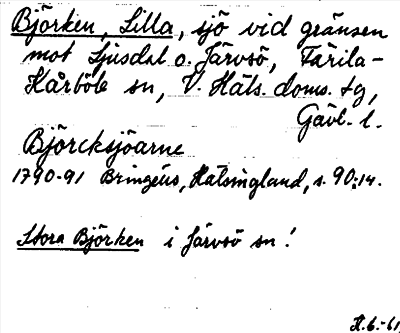 Björken, Lilla, sjö vid gränsen
mot Ljusdal o. Järvsö, Färila-
Kårböle sn, V. Häls. doms. tg,
Gävl. l.
Björcksjöarne
1790-91 Bringéus, Hälsingland, s. 90:14.
Stora Björken i Järvsö sn!
H.G.-61